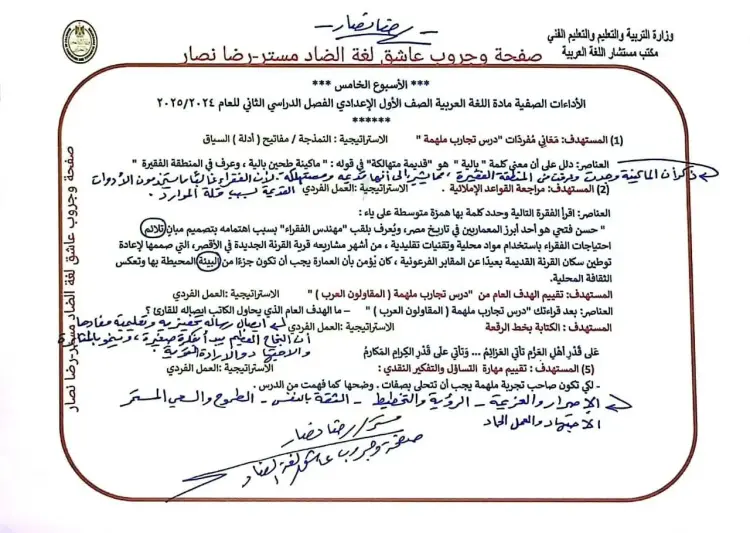 رضا نصار
وزارة التربية والتعليم والتعليم الفني
مكتب مستشار اللغة العربية
صفحة وجروب عاشق لغة الضاد مستر-رضا نصار
*** الأسبوع الخامس ***
الأداءات الصفية مادة اللغة العربية الصف الأول الإعدادي الفصل الدراسي الثاني للعام ٢٠٢٥/٢٠٢٤
******
(1) المستهدف: مَعَاني مُفردَات "درس تجارب ملهمة " الاستراتيجية : النمذجة / مفاتيح ( أدلة ) السياق
العناصر: دلل على أن معنى كلمة " بالية " هو "قديمة متهالكة" في قوله : " ماكينة طحين بالية ، وعرف في المنطقة الفقيرة "
ذكر أن الماكينة وجدت وعرفت في المنطقة الفقيرة، مما يشير إلى أنها قديمة ومستهلكة لأن الفقراء غالبا ما يستخدمون الأدوات
القديمة بسبب قلة الموارد.
(2) المستهدف: مراجعة القواعد الإملائية . الاستراتيجية: العمل الفردي
العناصر: اقرأ الفقرة التالية وحدد كلمة بها همزة متوسطة على ياء :
" حسن فتحي هو أحد أبرز المعماريين في تاريخ مصر، ويُعرف بلقب "مهندس الفقراء" بسبب اهتمامه بتصميم مبانٍ تلائم
احتياجات الفقراء باستخدام مواد محلية وتقنيات تقليدية ، من أشهر مشاريعه قرية القرنة الجديدة في الأقصر، التي صممها لإعادة
توطين سكان القرنة القديمة بعيدًا عن المقابر الفرعونية ، كان يُؤمن بأن العمارة يجب أن تكون جزءًا من البيئة المحيطة بها وتعكس
الثقافة المحلية.
المستهدف: تقييم الهدف العام من "درس تجارب ملهمة ( المقاولون العرب ) " الاستراتيجية :العمل الفردي
العناصر: بعد قراءتك "درس تجارب ملهمة ( المقاولون العرب ) " – ما الهدف العام الذي يحاول الكاتب ايصاله للقارئ ؟
إيصال رسالة تحفيزية وتعليمية مفادها
المستهدف : الكتابة بخط الرقعة الاستراتيجية :العمل الفردي
أن النجاح العظيم يبدأ بفكرة صغيرة، وينمو بالمثابرة
والاجتهاد والإرادة القوية
عَلى قَدْرِ أهلِ العَزْمِ تَأتي العَزائِمُ ... وَتأتي على قَدْرِ الكِرامِ المَكارمُ
(5) المستهدف : تقييم مهارة التساؤل والتفكير النقدي : الاستراتيجية : العمل الفردي
- لكي تكون صاحب تجربة ملهمة يجب أن تتحلى بصفات . وضحها كما فهمت من الدرس .
الإصرار والعزيمة - الرؤية والتخطيط - الثقة بالنفس - الطموح والسعي المستمر
الاجتهاد والعمل الجاد
مستر/ رضا نصار
صفحة وجروب عاشق لغة الضاد
صفحة وجروب عاشق لغة الضاد مستر-رضا نصار
صفحة وجروب عاشق لغة الضاد مستر رضا نصار